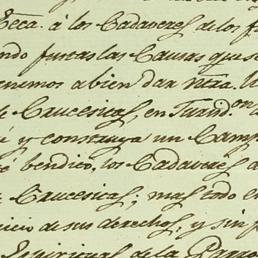 Tca. á los Cadaveres de los f
ndo justas las Causas que se
enemos a bien dar ntra. L
e Caucesicas, en Jurisdon. on
é y construya un Camp
é bendico, los Cadavres a
e Caucesicas; mas todo en
icio de sus derechos, y sin p
Espiritual de la Parro